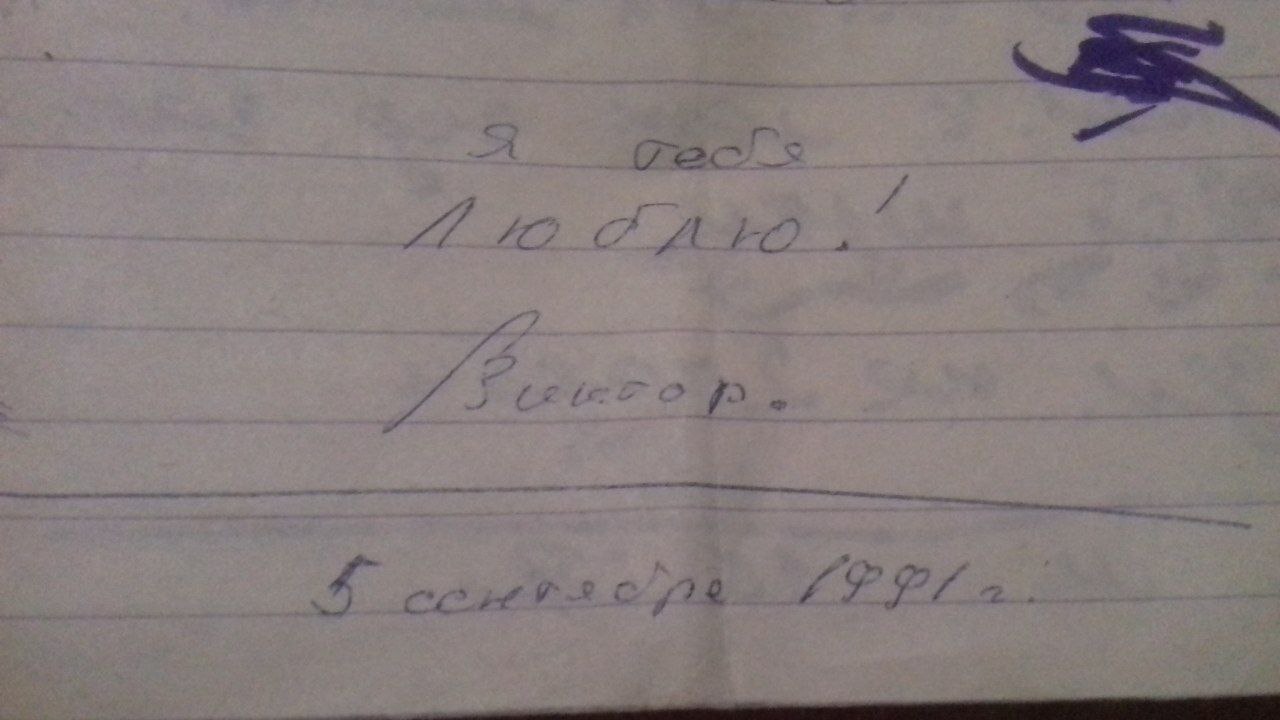 я тебя
Люблю!
Виктор.
5 сентября 1991 г.